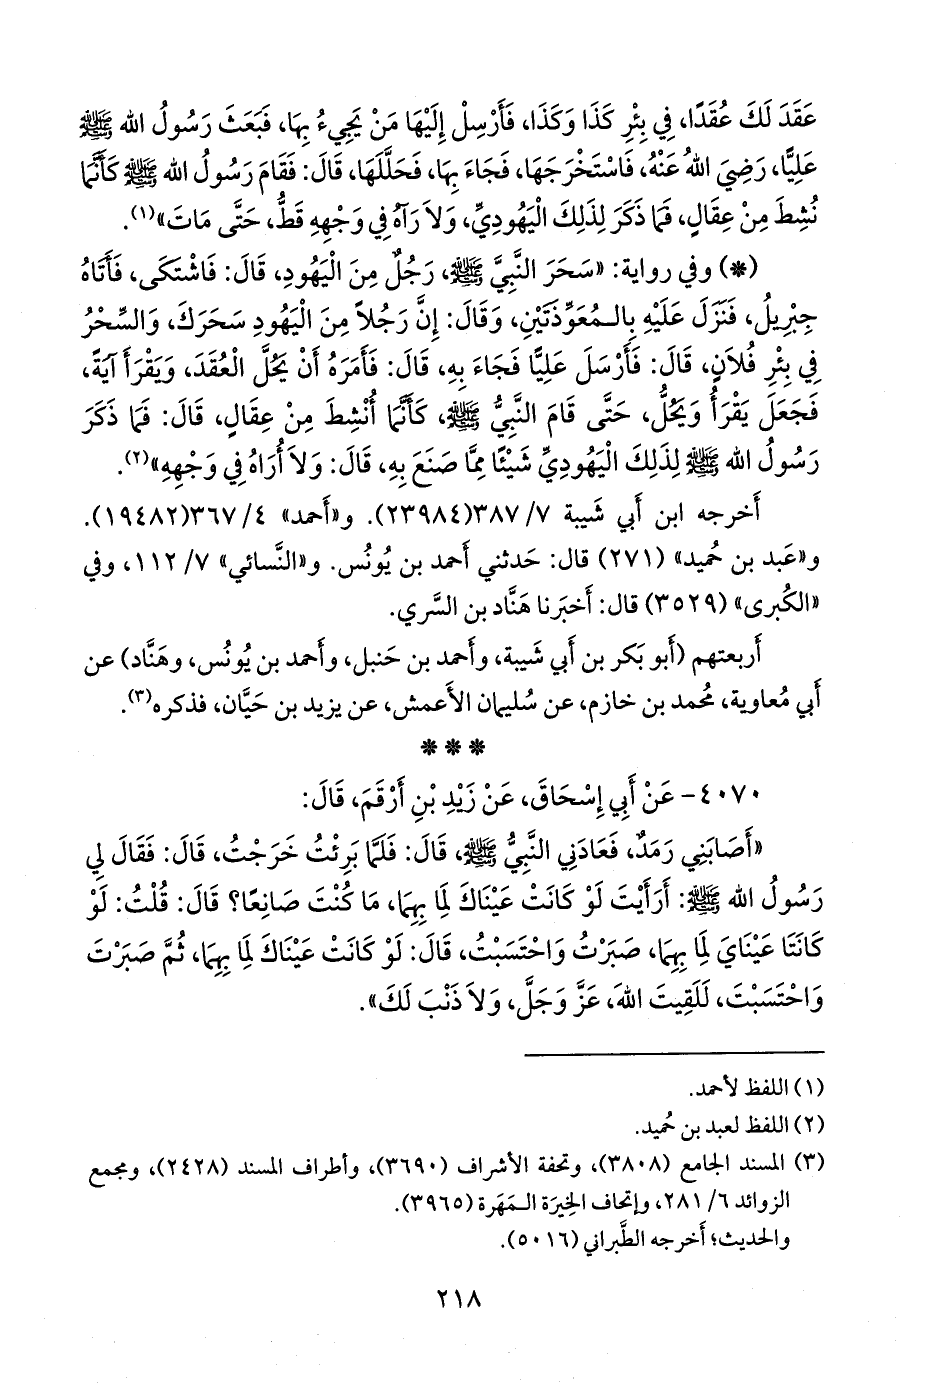 عَقَدَ لَكَ عُقَدًا، فِي بِئْرِ كَذَا وَكَذَا، فَأَرْسِلْ إِلَيْهَا مَنْ يَجِيءُ بِهَا، فَبَعَثَ رَسُولُ الله ﷺ
عَلِيًّا، رَضِيَ اللهُ عَنْهُ، فَاسْتَخْرَجَهَا، فَجَاءَ بِهَا، فَحَلَّلَهَا، قَالَ: فَقَامَ رَسُولُ الله ﷺ كَأَنَّمَا
نُشِطَ مِنْ عِقَالٍ، فَمَا ذَكَرَ لِذَلِكَ الْيَهُودِيِّ، وَلاَ رَآهُ فِي وَجْهِهِ قَطُّ، حَتَّى مَاتَ»(١).
(*) وفي رواية: «سَحَرَ النَّبِيَّ ﷺ، رَجُلٌ مِنَ الْيَهُودِ، قَالَ: فَاشْتَكَى، فَأَتَاهُ
جِبْرِيلُ، فَنَزَلَ عَلَيْهِ بِالـمُعَوِّذَتَيْنِ، وَقَالَ: إِنَّ رَجُلاً مِنَ الْيَهُودِ سَحَرَكَ، وَالسِّحْرُ
فِي بِئْرِ فُلاَنٍ، قَالَ: فَأَرْسَلَ عَلِيًّا فَجَاءَ بِهِ، قَالَ: فَأَمَرَهُ أَنْ يَحُلَّ الْعُقَدَ، وَيَقْرَأَ آيَةً،
فَجَعَلَ يَقْرَأُ وَيَحُلُّ، حَتَّى قَامَ النَّبِيُّ ﷺ، كَأَنَّمَا أُنْشِطَ مِنْ عِقَالٍ، قَالَ: فَمَا ذَكَرَ
رَسُولُ الله ﷺ لِذَلِكَ الْيَهُودِيِّ شَيْئًا مِمَّا صَنَعَ بِهِ، قَالَ: وَلاَ أُرَاهُ فِي وَجْهِهِ»(٢).
أَخرجه ابن أَبي شَيبة ٧/ ٣٨٧(٢٣٩٨٤). و«أَحمد» ٤/ ٣٦٧(١٩٤٨٢).
و«عَبد بن حُميد» (٢٧١) قال: حَدثني أَحمد بن يُونُس. و«النَّسائي» ٧/ ١١٢، وفي
«الكُبرى» (٣٥٢٩) قال: أَخبَرنا هَنَّاد بن السَّري.
أَربعتهم (أَبو بَكر بن أَبي شَيبة، وأَحمد بن حَنبل، وأَحمد بن يُونُس، وهَنَّاد) عن
أَبي مُعاوية، مُحمد بن خازم، عن سُليمان الأَعمش، عن يزيد بن حَيَّان، فذكره(٣).
* * *
٤٠٧٠- عَنْ أَبِي إِسْحَاقَ، عَنْ زَيْدِ بْنِ أَرْقَمَ، قَالَ:
«أَصَابَنِي رَمَدٌ، فَعَادَنِي النَّبِيُّ ﷺ، قَالَ: فَلَمَّا بَرِئْتُ خَرَجْتُ، قَالَ: فَقَالَ لِي
رَسُولُ الله ﷺ: أَرَأَيْتَ لَوْ كَانَتْ عَيْنَاكَ لِمَا بِهِمَا، مَا كُنْتَ صَانِعًا؟ قَالَ: قُلْتُ: لَوْ
كَانَتَا عَيْنَايَ لِمَا بِهِمَا، صَبَرْتُ وَاحْتَسَبْتُ، قَالَ: لَوْ كَانَتْ عَيْنَاكَ لِمَا بِهِمَا، ثُمَّ صَبَرْتَ
وَاحْتَسَبْتَ، لَلَقِيتَ اللهَ، عَزَّ وَجَلَّ، وَلاَ ذَنْبَ لَكَ».
(١) اللفظ لأحمد.
(٢) اللفظ لعبد بن حُميد.
(٣) المسند الجامع (٣٨٠٨)، وتحفة الأشراف (٣٦٩٠)، وأطراف المسند (٢٤٢٨)، ومجمع
الزوائد ٦/ ٢٨١، وإتحاف الخِيرَة الـمَهَرة (٣٩٦٥).
والحديث؛ أخرجه الطَّبراني (٥٠١٦).
٢١٨